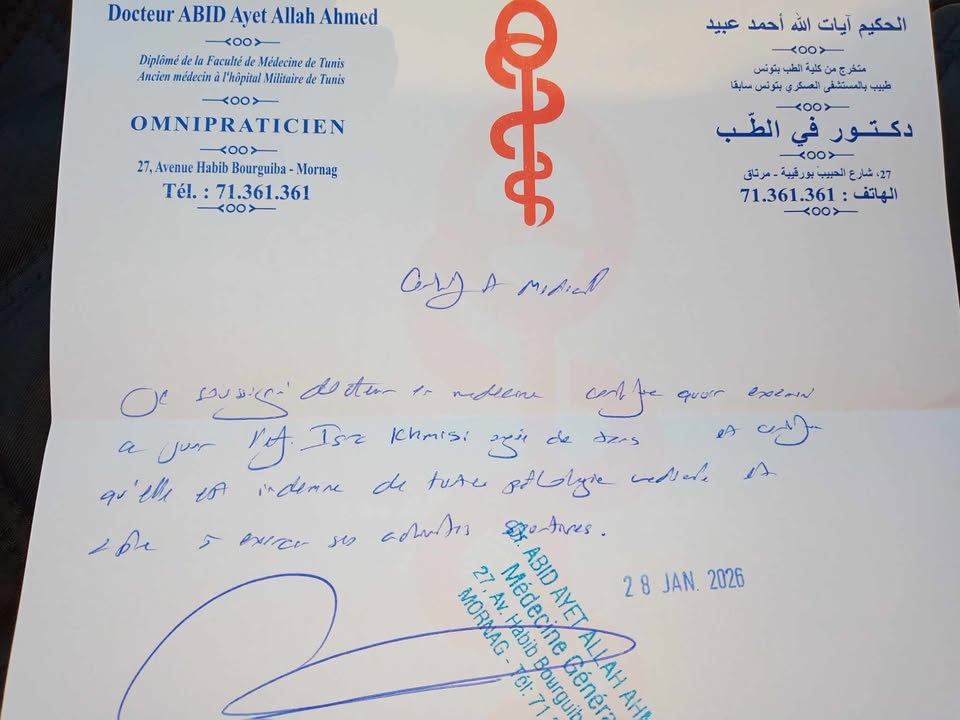 Docteur ABID Ayet Allah Ahmed
Diplômé de la Faculté de Médecine de Tunis
Ancien médecin à l'hôpital Militaire de Tunis
OMNIPRATICIEN
27, Avenue Habib Bourguiba - Mornag
Tél. : 71.361.361
الحكيم آيات الله أحمد عبيد
متخرج من كلية الطب بتونس
طبيب بالمستشفى العسكري بتونس سابقا
دكتور في الطب
27، شارع الحبيب بورقيبة - مرناق
الهاتف : 71.361.361
Je soussigné docteur en medecine certifie avoir examiné
ce jour l'enf. Isra Khmisi agée de ans et certifie
qu'elle est indemne de toute pathologie medicale et
à exercer ses activités sportives.
28 JAN. 2026
Dr. ABID AYET ALLAH AHM
Médecine Généra
27, Av. Habib Bourguib
MORNAG - Tél: 71